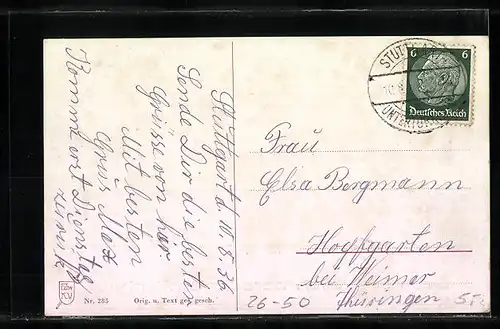 Stuttgart d. 11. 8. 36
Sende Dir die besten
Grüsse von hier.
Mit besten
Gruss Max
Komme erst Dienstag
zurück
Nr. 285 Orig. u. Text ges. gesch.
STUTTGART
UNTERTÜRKHEIM
6 6
Deutsches Reich
Frau
Elsa Bergmann
Hopfgarten
bei Weimar
Thüringen
26-50